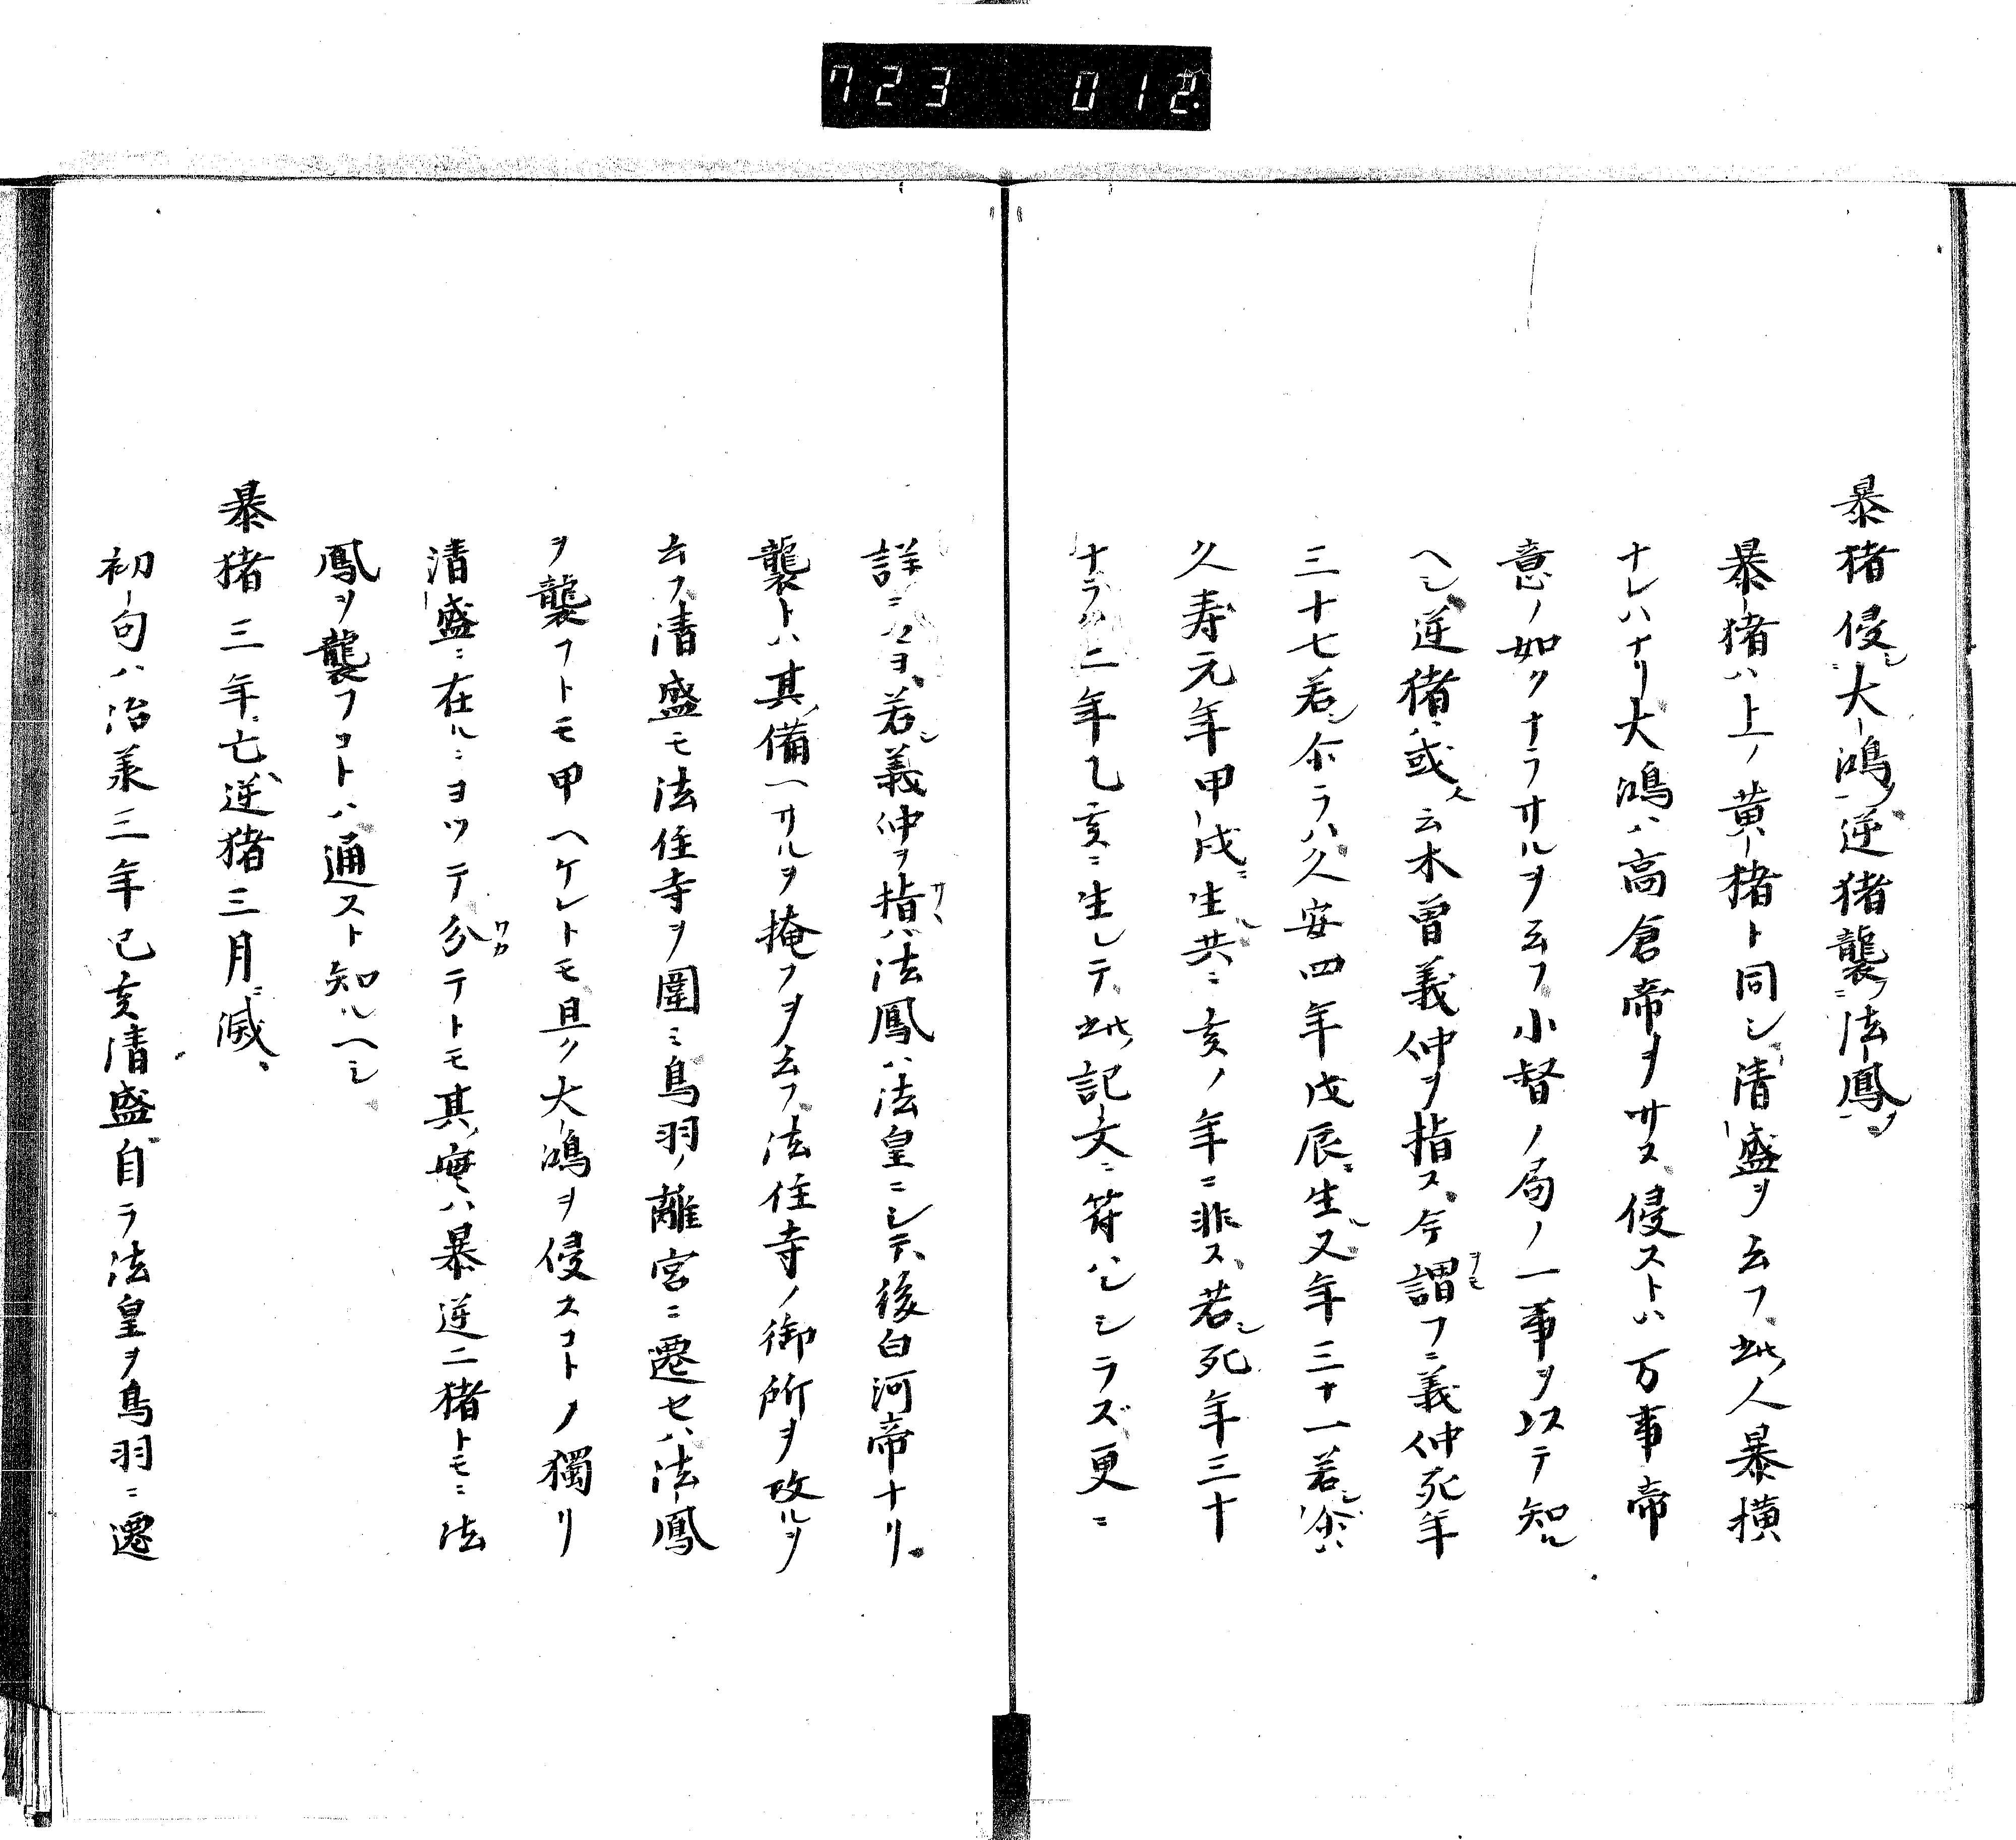 723 012
暴猪侵シ大鴻ヲ逆猪襲フ法鳳ヲ
暴猪ハ上ノ黄猪ト同シ清盛ヲ云フ此人暴横
ナレハナリ大鴻ハ高倉帝ヲサス侵ストハ万事帝
意ノ如クナラサルヲ云フ小督ノ局ノ一事ヲ以テ知ル
ヘシ逆猪ハ或人云木曽義仲ヲ指ス今謂フニ義仲死年
三十七若シ尒ラハ久安四年戊辰ニ生又年三十一若シ尒ハ
久寿元年甲戌ニ生共ニ亥ノ年ニ非ス若シ死年三十
ナラハ二年乙亥ニ生レテ此記文ニ符ハシシラズ更ニ
詳ニセヨ若シ義仲ヲ指サハ法鳳ハ法皇ニシテ後白河帝ナリ
襲トハ其備ヘサルヲ掩フヲ云フ法住寺ノ御所ヲ攻ルヲ
云フ清盛モ法住寺ヲ圍ミ鳥羽ノ離宮ニ遷セハ法鳳
ヲ襲フトモ甲ヘケレトモ且ク大鴻ヲ侵スコトノ獨リ
清盛ニ在ルニヨツテ分テトモ其實ハ暴逆二猪トモニ法
鳳ヲ襲フコトハ通スト知ルヘシ
暴猪三年ニ亡逆猪三月ニ滅
初句ハ治承三年己亥清盛自ラ法皇ヲ鳥羽ニ遷